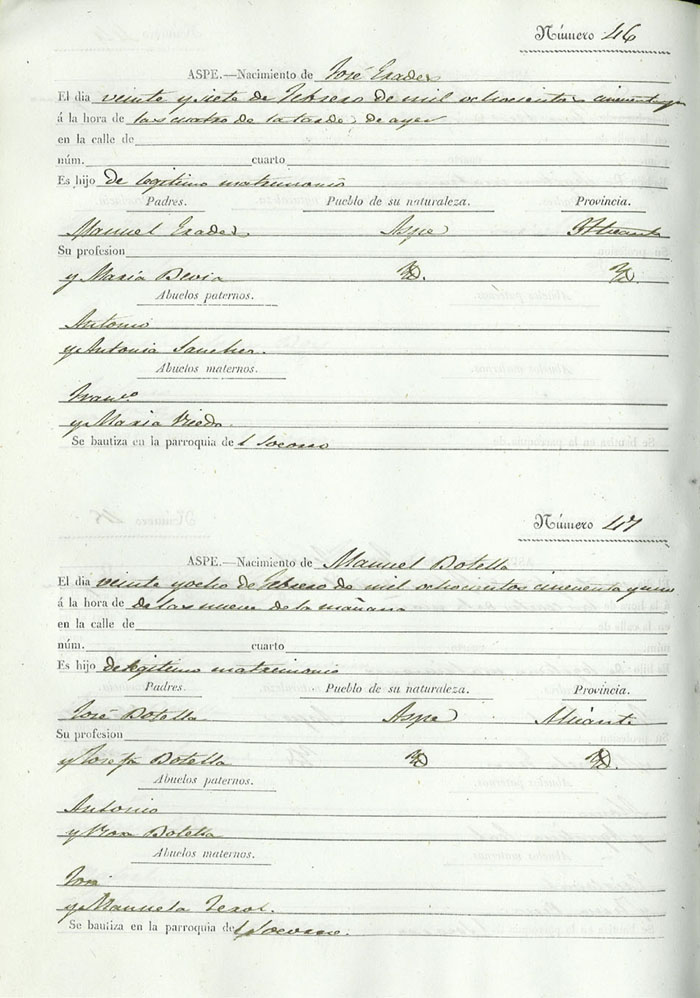 Número 46
ASPE.—Nacimiento de José
El dia veinte y siete de Febrero de mil ochocientos cincuenta y
á la hora de las cuatro de la tarde de ayer
en la calle de
núm. cuarto
Es hijo de legitimo matrimonio
Padres. Pueblo de su naturaleza. Provincia.
Manuel Aspe Alicante
Su profesion
y Maria
Abuelos paternos.
Antonio
y Antonia Sanchez.
Abuelos maternos.
Franco
y Maria
Se bautiza en la parroquia del Socorro
Número 47
ASPE.—Nacimiento de Manuel Botella
El dia veinte y ocho de Febrero de mil ochocientos cincuenta y uno
á la hora de de las nueve de la mañana
en la calle de
núm. cuarto
Es hijo de legitimo matrimonio
Padres. Pueblo de su naturaleza. Provincia.
José Botella Aspe Alicante
Su profesion
y Josefa Botella
Abuelos paternos.
Antonio
y Botella
Abuelos maternos.
José
y Manuela
Se bautiza en la parroquia del Socorro.